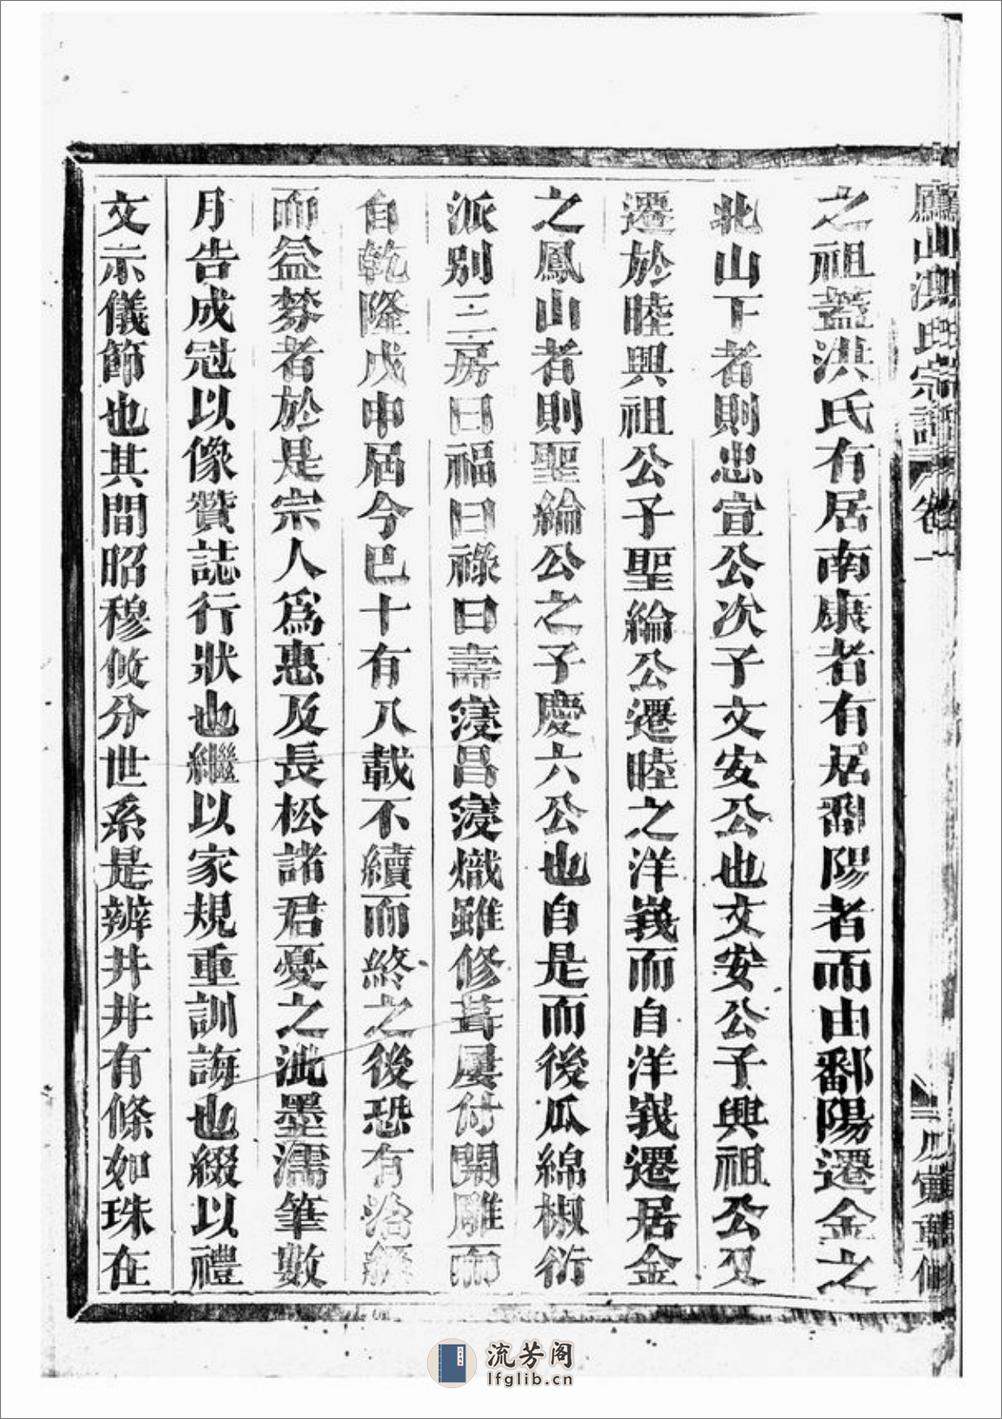 之祖蓋洪氏有居南康者有居鄱陽者而由鄱陽遷金之
北山下者則忠宣公次子文安公也文安公子興祖公又
遷於睦興祖公子聖綸公遷睦之洋峩而自洋峩遷居金
之鳳山者則聖綸公之子慶六公也自是而後瓜綿椒衍
派別三房曰福曰祿曰壽寖昌寖熾雖修葺屢付開雕而
自乾隆戊申屆今巳十有八載不續而終之後恐有治經
而益棼者於是宗人為惠及長松諸君憂之泚墨濡筆數
月告成冠以像贊誌行狀也繼以家規重訓誨也綴以禮
文示儀節也其間昭穆攸分世系是辨井井有條如珠在
流芳阁
lfglib.cn